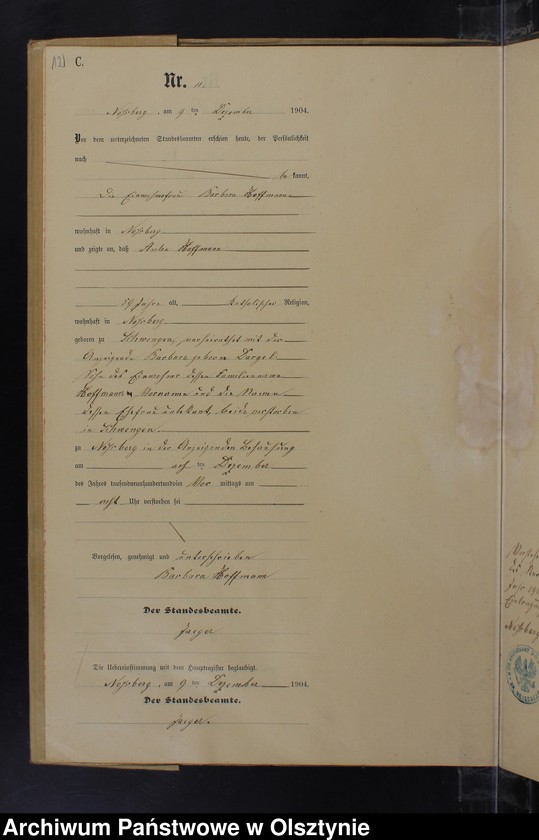 12) C.
Nr. 11.
Noßberg, am 9 ten Dezember 1904.
Vor dem unterzeichneten Standesbeamten erschien heute, der Persönlichkeit
nach
be kannt,
Die Einwohnerfrau Barbara Hoffmann
wohnhaft in Noßberg
und zeigte an, daß Hoffmann
59 Jahre alt, katholischer Religion,
wohnhaft in Noßberg
geboren zu Schwengen, verheirathet mit der
Anzeigende Barbara geborene Dargel
Sohn des Einwohner dessen Familienname
Hoffmann Vorname und die Namen
dessen Ehefrau unbekant, beide verstorben
in Schwengen.
zu Noßberg in der Anzeigenden Behausung
am acht ten Dezember
des Jahres tausendneunhundertundvier Vor mittags um
acht Uhr verstorben sei
Vorgelesen, genehmigt und unterschrieben
Barbara Hoffmann
Der Standesbeamte.
Jaeger
Die Uebereinstimmung mit dem Hauptregister beglaubigt.
Noßberg, am 9 ten Dezember 1904.
Der Standesbeamte.
Jaeger.
Noßberg
Archiwum Państwowe w Olsztynie